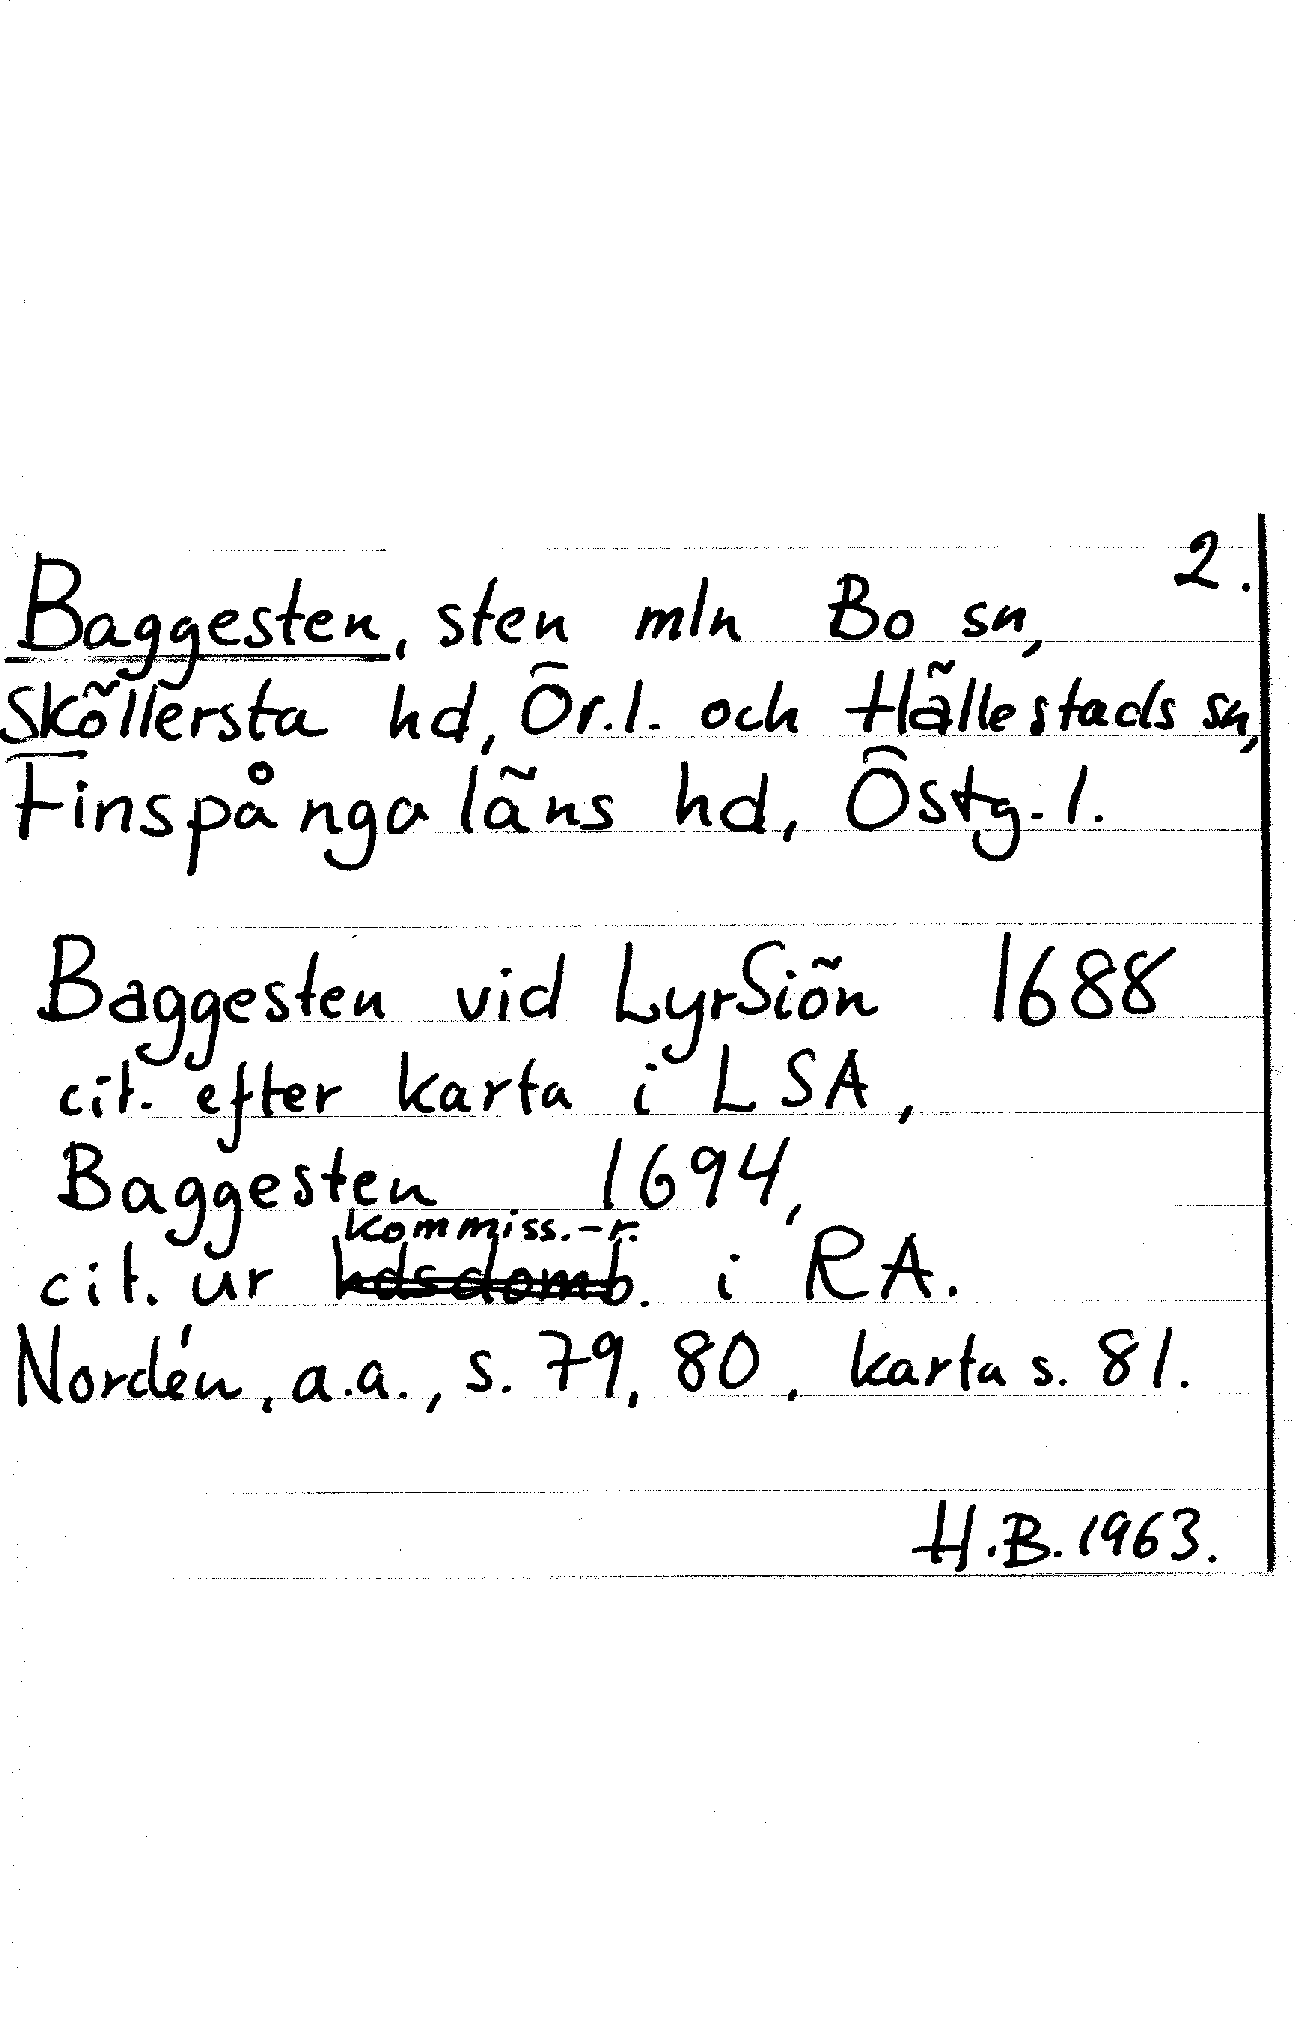 2.
Baggesten, sten mln Bo sn,
Sköllersta hd, Ör.l. och Hällestads sn,
Finspånga läns hd, Östg.l.
Baggesten vid LyrSiön 1688
cit. efter karta i LSA,
Baggesten 1694,
kommiss.-r.
cit. ur hdsdomb. i RA.
Nordén, a.a., s. 79, 80, karta s. 81.
H.B. 1963.